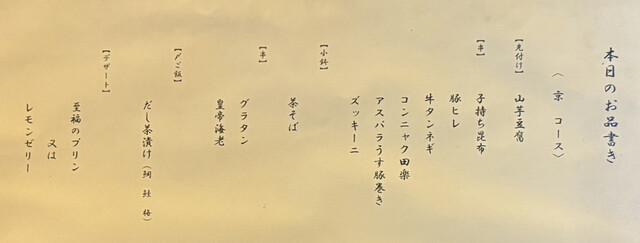 本日のお品書き
〈 京 コース〉
【先付け】 山芋豆腐
【串】 子持ち昆布
豚ヒレ
牛タンネギ
コンニャク田楽
アスパラうす豚巻き
ズッキーニ
【小鉢】
茶そば
【串】
グラタン
皇帝海老
【〆ご飯】
だし茶漬け（鯛 鮭 梅）
【デザート】
至福のプリン
又は
レモンゼリー